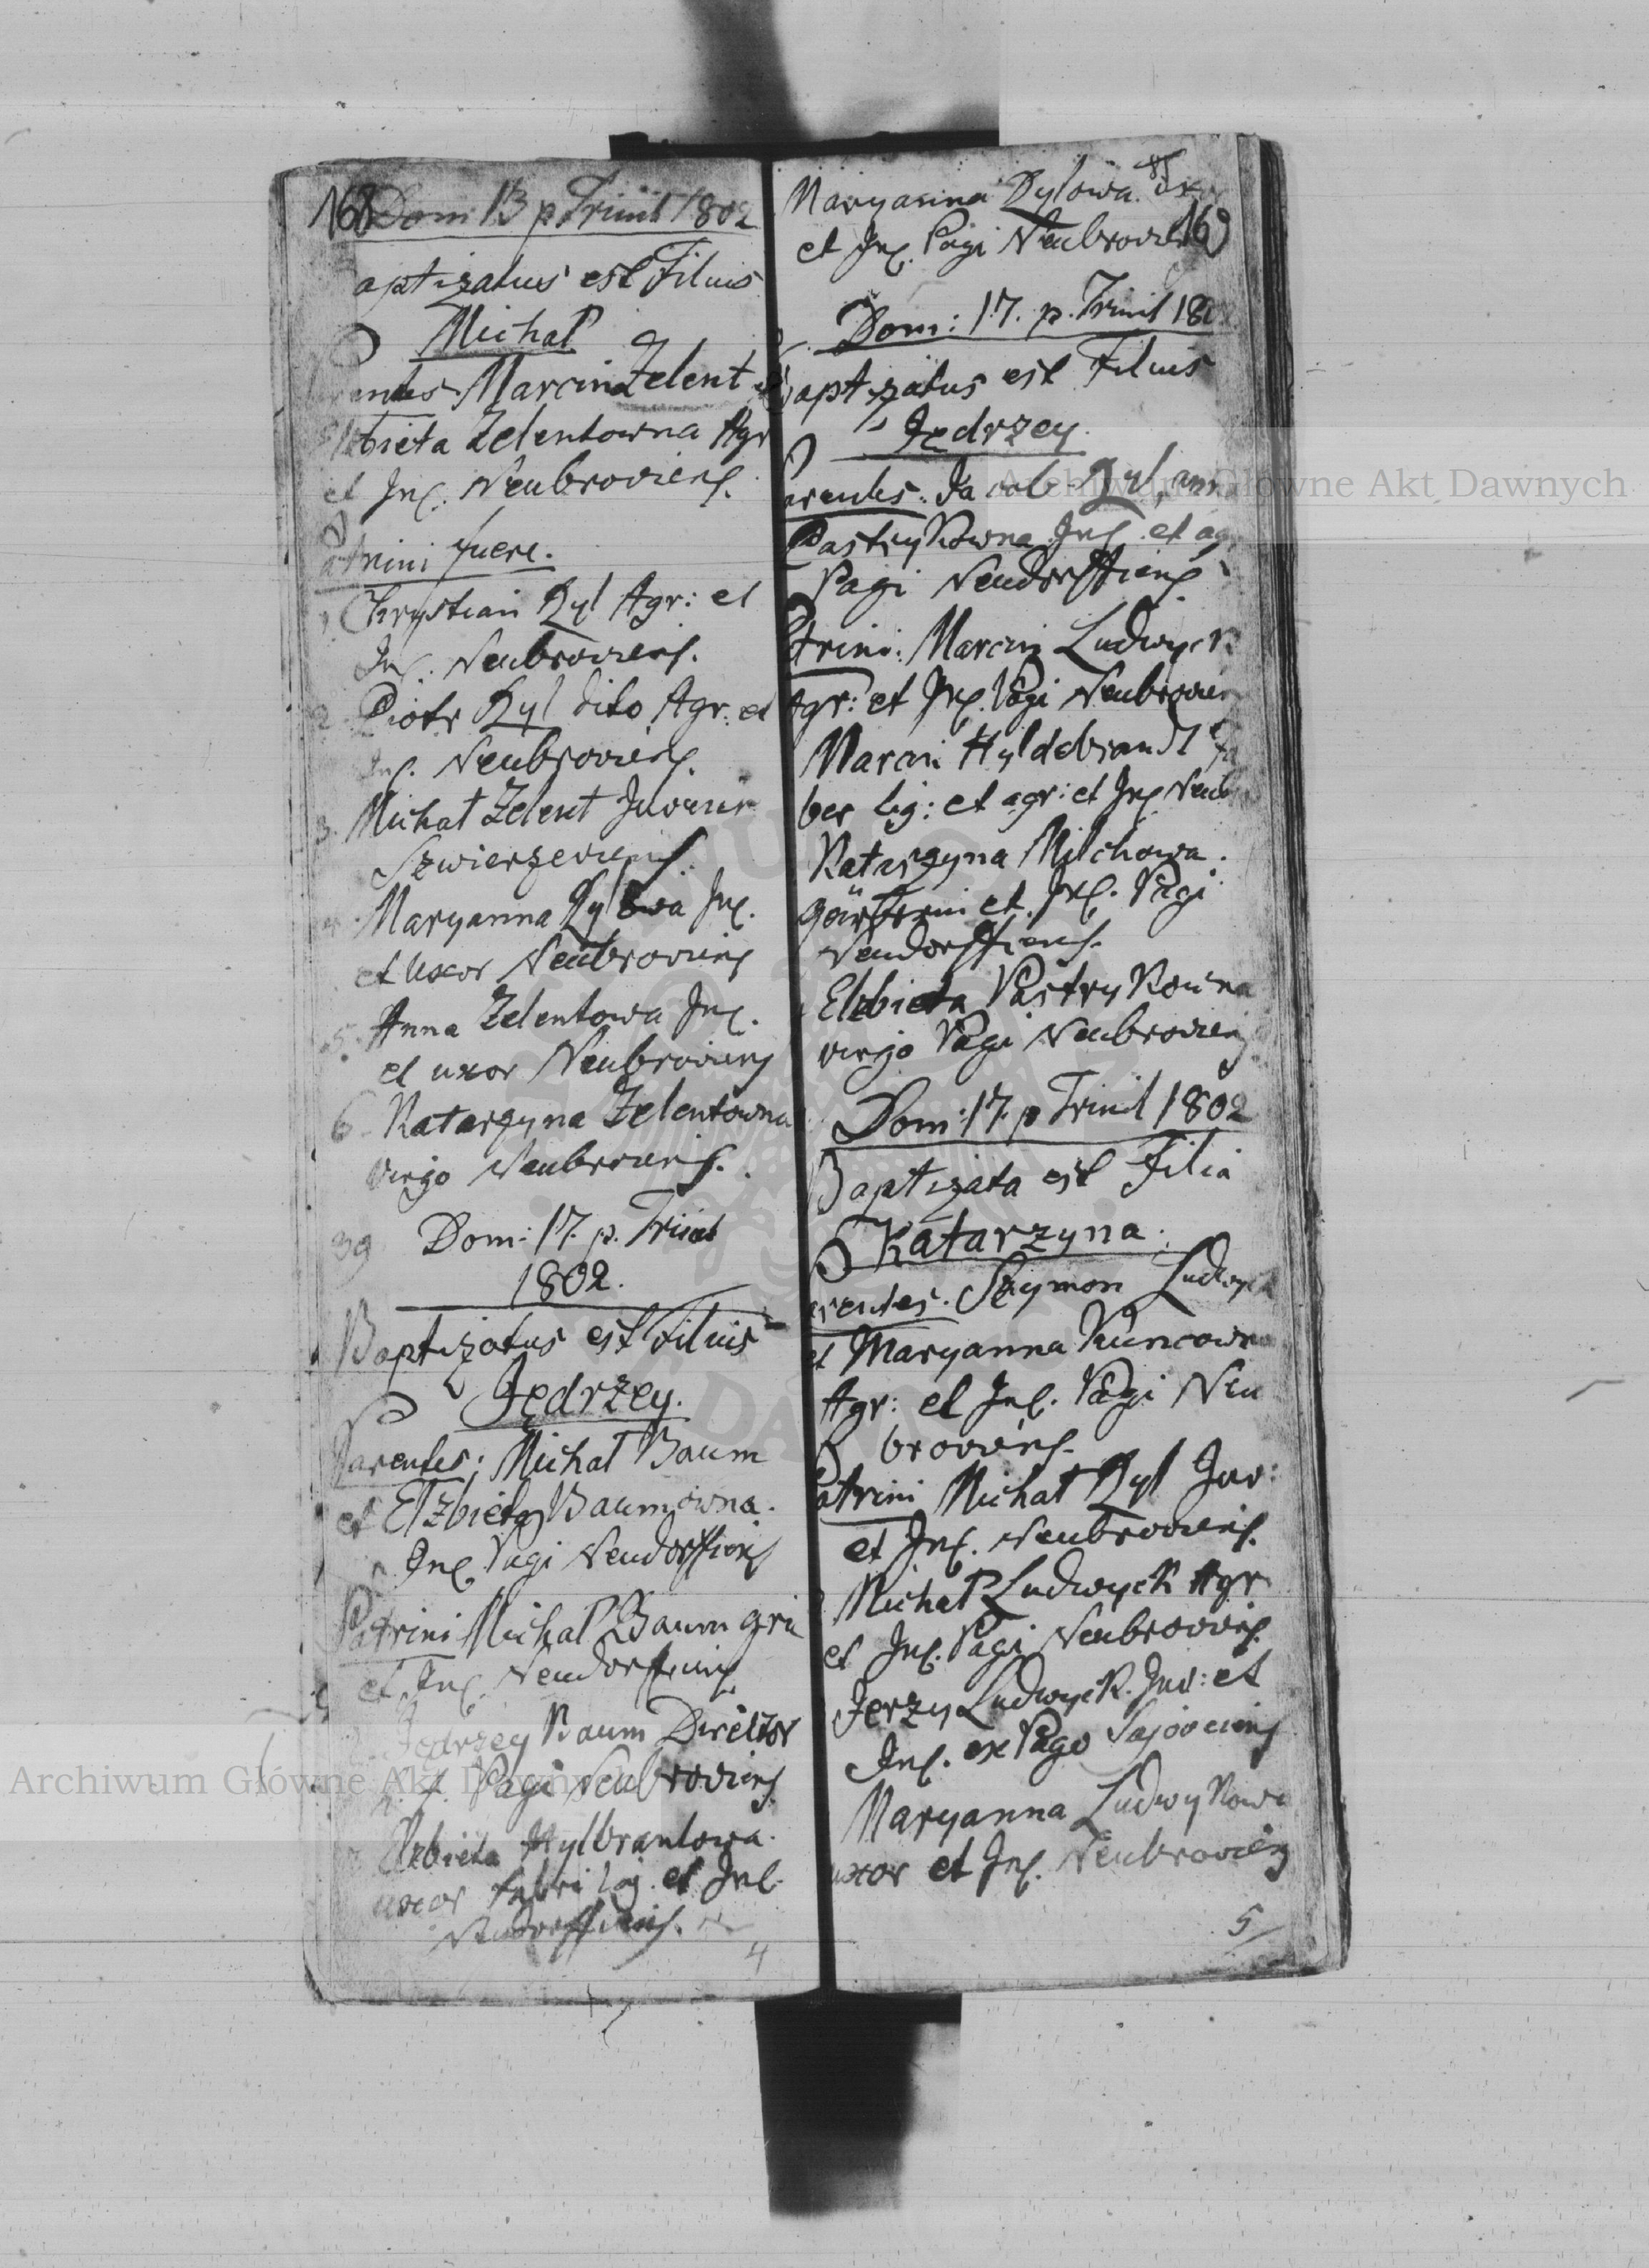 168 Dom 13 p Trinit 1802
aptizatus est Filius
Michał
Parentes Marcin Zelent et
Elzbieta Zelentowna Agr
et Inq. Neubroviens.
Patrini fuere.
1. Chrystian Ryl Agr: et
Inq. Neubroviens.
2. Piotr Ryl dito Agr: et
Inq. Neubroviens.
3. Michał Zelent Juvenis
Szwierzeviens.
4. Maryanna Rylowa Inq.
et Uxor Neubroviens
5. Anna Zelentowa Inq.
et uxor Neubroviens
6. Katarzyna Zelentowna
virgo Neubroviens.
39 Dom: 17. p. Trinit
1802.
Baptizatus est Filius
Jędrzey.
Parentes: Michał Baum
et Elzbieta Baumowna.
Inq. Pagi Neudorffiens
Patrini Michał Baum gri
et Inq. Neudorffiens
Jędrzey Baum Direktor
Pagi Neubroviens.
Elzbieta Hylbrantowa.
uxor fabri lig. et Inq.
Neudorffiens.
4
Maryanna Rylowa. Ux
et Inq. Pagi Neubroviens 169
Dom: 17. p. Trinit 180
Baptizatus est Filius
Jędrzey.
Parentes. Jacob Ryl, ann
Pastrykowna Inq. et ag
Pagi Neudorffiens
Patrini: Marcin Ludwyck
Agr: et Inq. Pagi Neubrovien
Marcin Hyldebrandt fa
ber lig: et agr: et Inq Neub
Katarzyna Milchowa.
et Inq. Pagi
Neudorffiens.
Elzbieta Pastrykowna
virgo Pagi Neubroviens
Dom: 17. p Trinit 1802
Baptizata est Filia
Katarzyna.
Parentes. Szymon Ludwyck
et Maryanna Kuncowna
Agr: et Inq. Pagi Neu
broviens.
Patrini Michał Ryl Juv:
et Inq. Neubroviens.
Michał Ludwyck Agr
et Inq. Pagi Neubroviens.
Jerzy Ludwyck. Juv: et
Inq. ex Pago
Maryanna Ludwykowa
uxor et Inq. Neubroviens
5
Archiwum Główne Akt Dawnych
Archiwum Główne Akt Dawnych